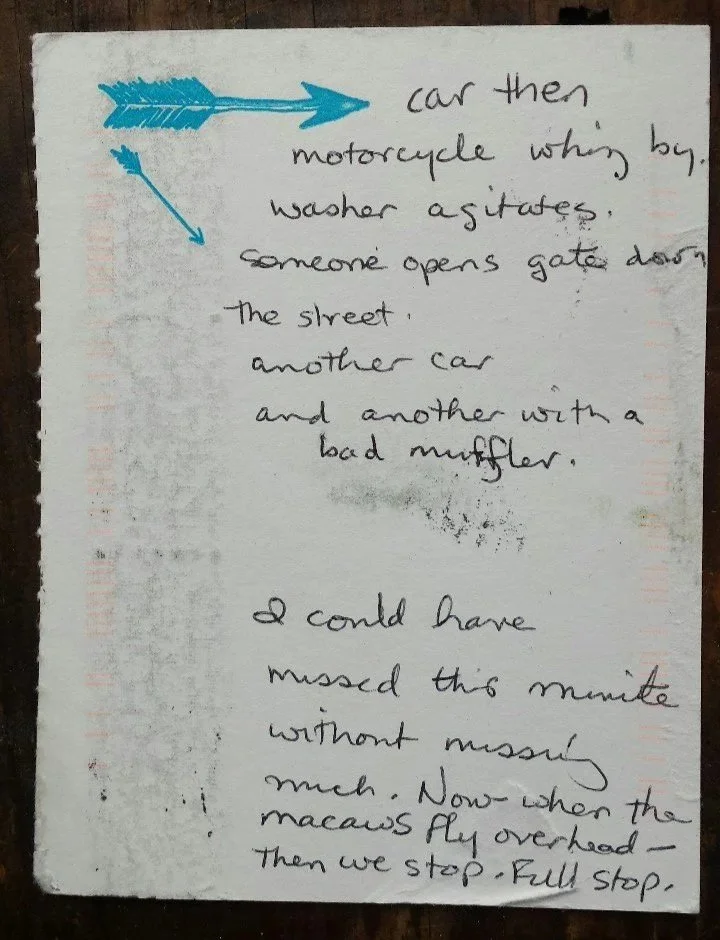 car then
motorcycle whiz by.
washer agitates.
someone opens gate down
the street.
another car
and another with a
bad muffler.
I could have
missed this minute
without missing
much. Now when the
macaws fly overhead—
then we stop. Full stop.